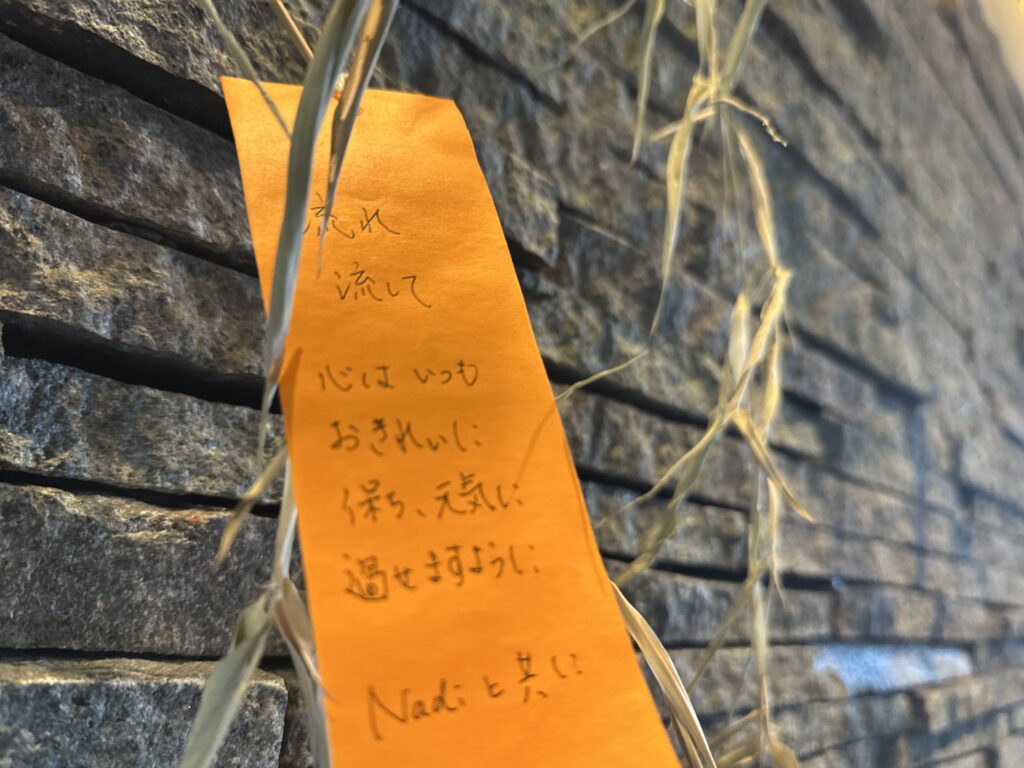 流れ
流して
心は いつも
おきれいに
保ち、元気に
過せますように
Nadiと共に